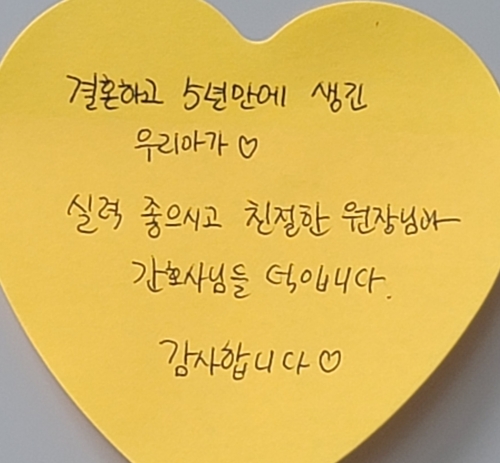 결혼하고 5년만에 생긴
우리아가♡
실력 좋으시고 친절한 원장님과
간호사님들 덕입니다.
감사합니다♡